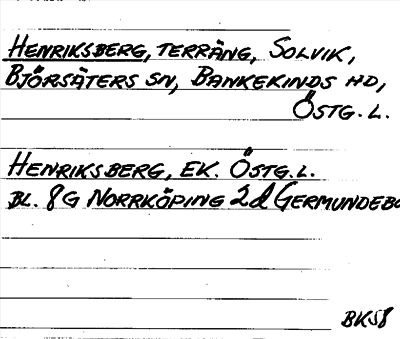 HENRIKSBERG, TERRÄNG, SOLVIK,
BJÖRSÄTERS SN, BANKEKINDS HD,
ÖSTG. L.
HENRIKSBERG, EK. ÖSTG. L.
BL. 8G NORRKÖPING 2d GERMUNDEBO
BK58